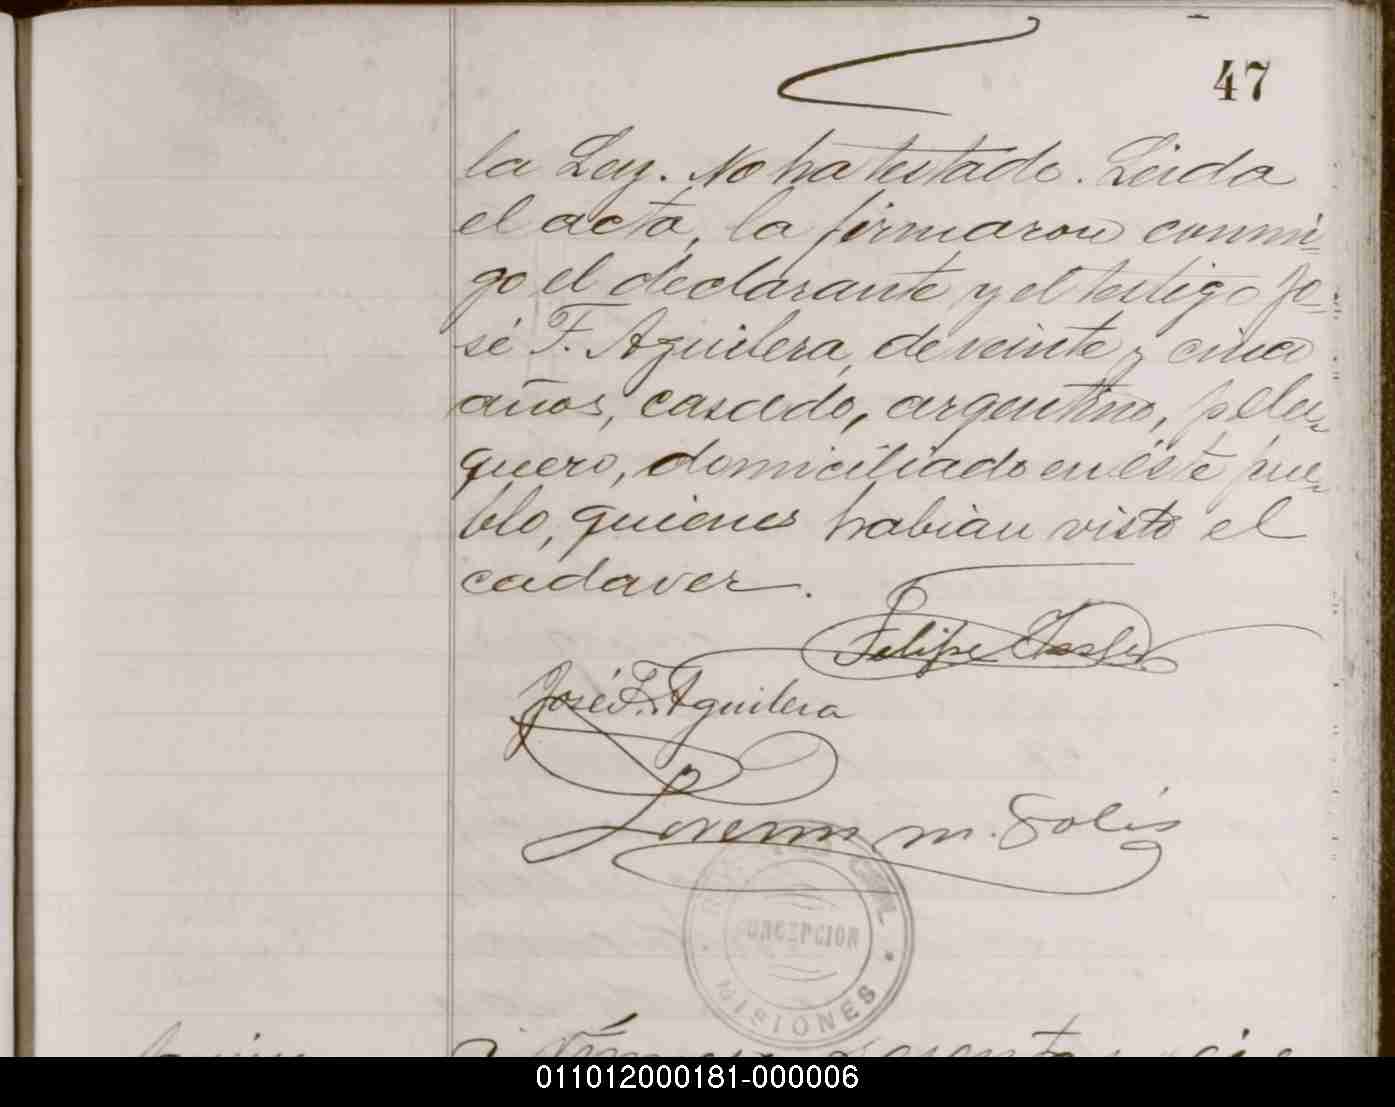 47
la Ley. No ha testado. Leida
el acta, la firmaron conmi=
go el declarante y el testigo Jo=
sé F. Aguilera, de veinte y cinco
años, casado, argentino, pelu=
quero, domiciliado en éste pue=
blo, quienes habian visto el
cadaver.
Felipe
José F. Aguilera
m. Solis
CIVIL
CONCEPCION
MISIONES
011012000181-000006